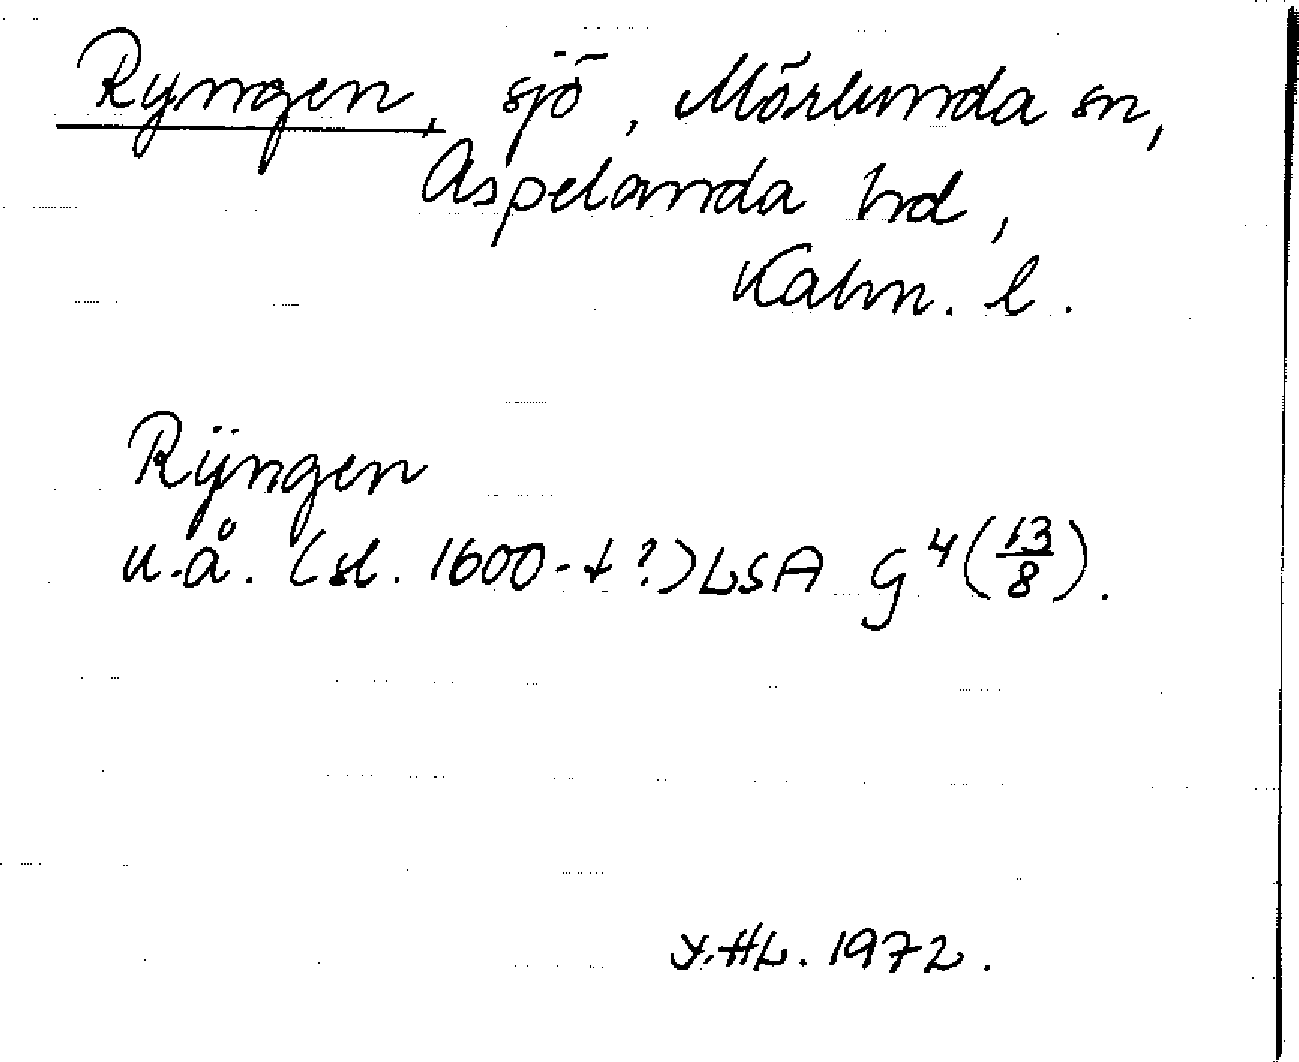 Ryngen, sjö, Mörlunda sn,
Aspelanda hd,
Kalm. l.
Rÿngen
u.å. (sl. 1600-t?) LSA G⁴(13/8).
Y.HL. 1972.